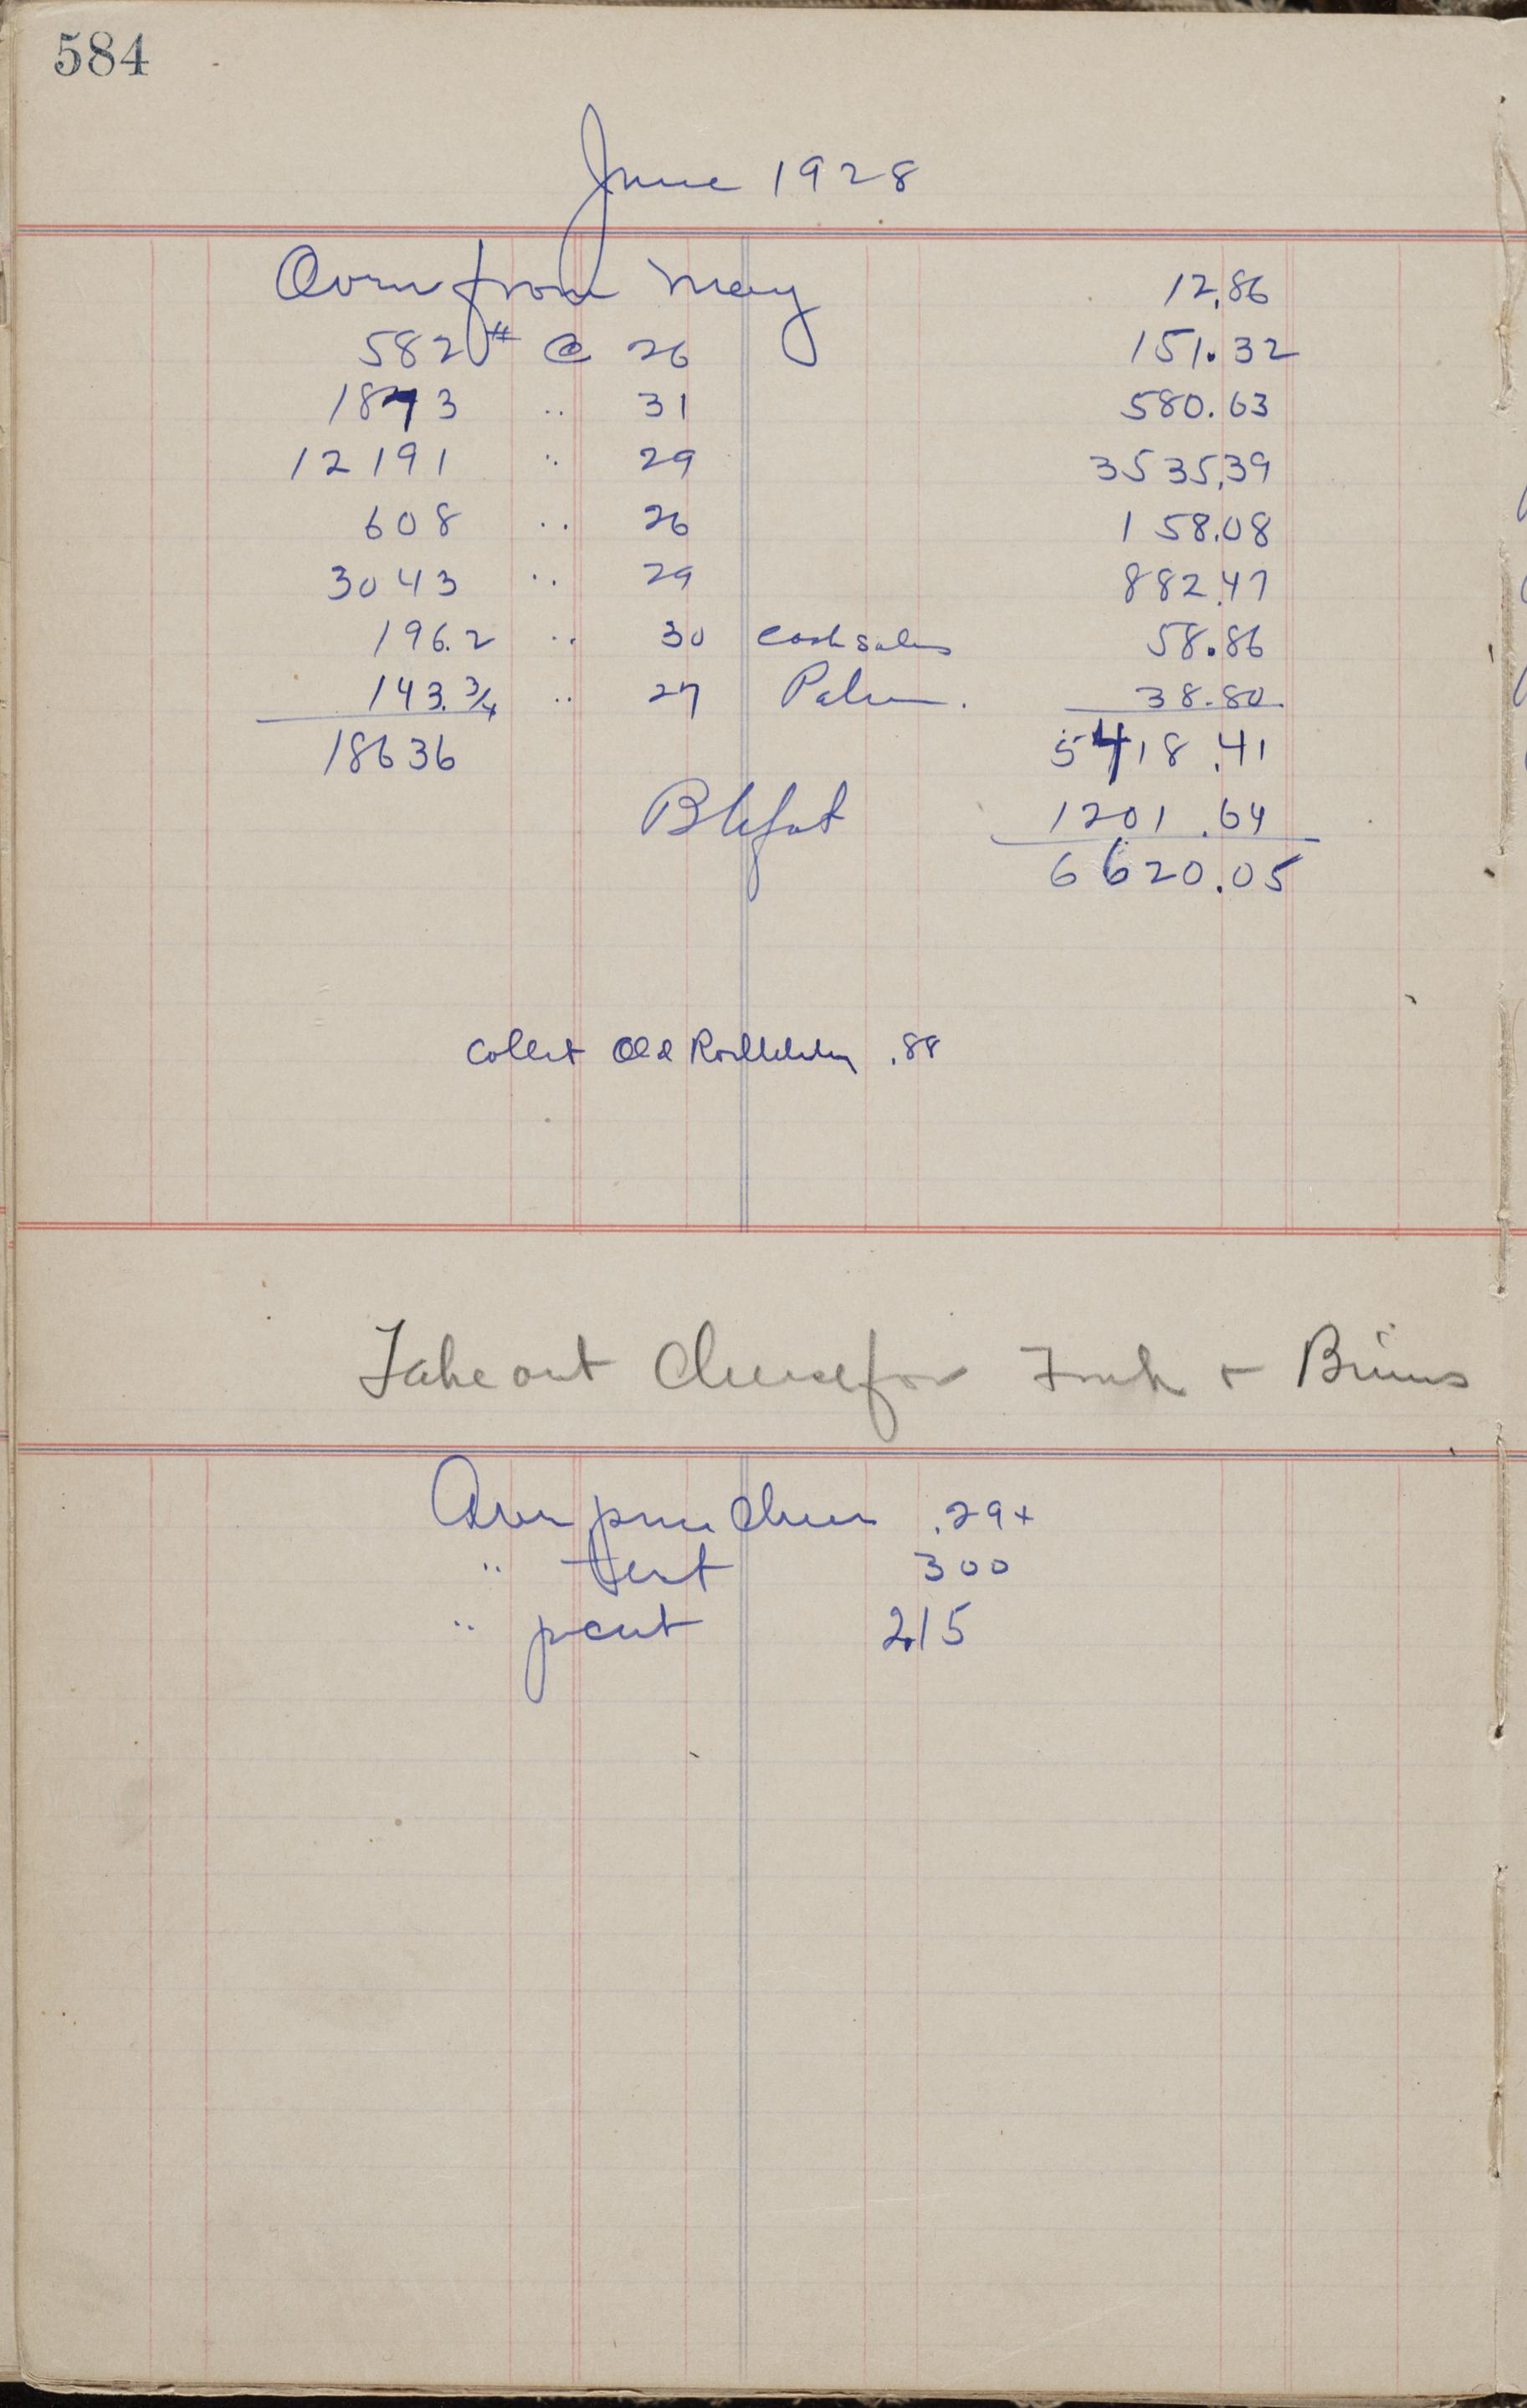 584
June 1928
Over from May 12.86
582# @ 26 151.32
1873 .. 31 580.63
12191 .. 29 3535.39
608 .. 26 158.08
3043 .. 29 882.47
196.2 .. 30 Cash sales 58.86
143.3/4 .. 27 38.80
18636 5418.41
B Cfat 1201.64
6620.05
Collect Old .88
Take out Cheese for &
Aver price Cheese .29+
" test 300
" pcent 2.15